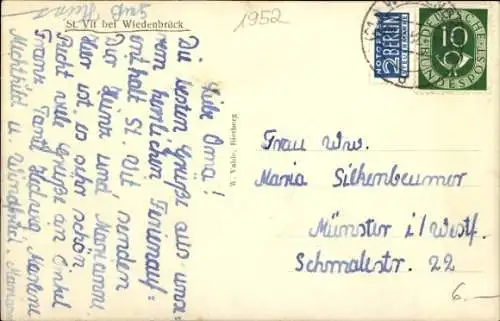 St. Vit bei Wiedenbrück
1952
Liebe Oma!
Die besten Grüße aus unse-
rem herrlichen Ferienauf=
enthalt St. Vit senden
Dir Heinz und Marianne.
Hier ist es sehr schön
Recht viele Grüße an Onkel
Franz Tante Hedwig Marlene
Mechthild u Winfried. Marian
Heinz
W. Vahle, Rietberg
NOTOPFER
2 BERLIN
STEUERMARKE
DEUTSCHE
10
BUNDESPOST
Frau Ww.
Maria Silkenbeumer
Münster i/Westf.
Schmalestr. 22
6.-